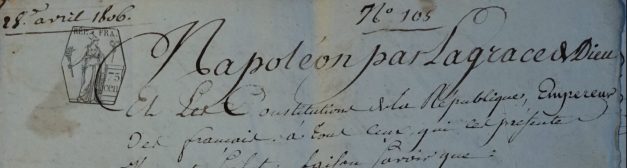 28. avril 1806.
N.o 103
RÉP. FRA.
75
CENT
Napoléon par La grace de Dieu
Et Les Constitutions de La République, Empereur
Des français. a tous ceux que ces presente
faison savoir que :